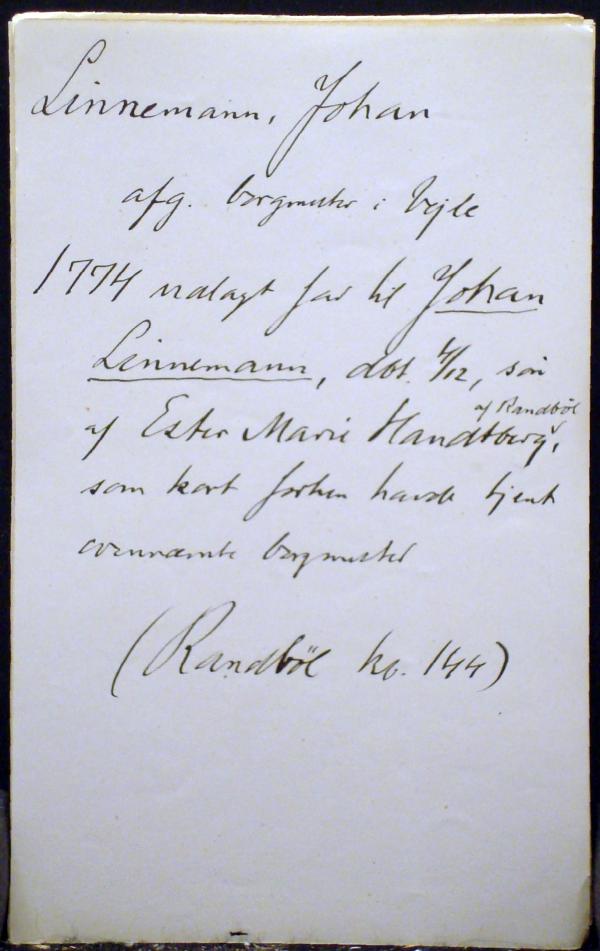 Linnemann, Johan
afg. borgmester i Vejle
1774 udlagt far til Johan
Linnemann, dbt. 4/12, søn
af Randbøl
af Ester Marie Handtberg,
som kort forhen havde tjent
ovennævnte borgmester
(Randbøl kb. 144)